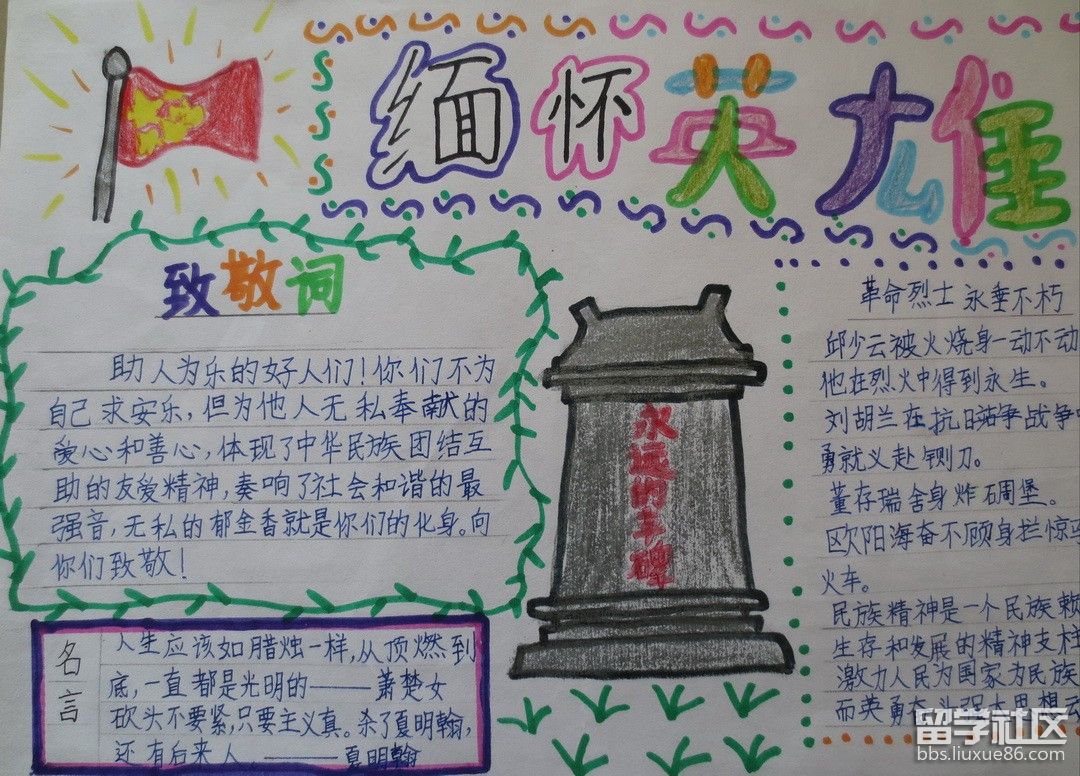 缅怀英雄
致敬词
助人为乐的好人们！你们不为
自己求安乐，但为他人无私奉献的
爱心和善心，体现了中华民族团结互
助的友爱精神，奏响了社会和谐的最
强音，无私的郁金香就是你们的化身。向
你们致敬！
名言
人生应该如腊烛一样，从顶燃到
底，一直都是光明的——萧楚女
砍头不要紧，只要主义真。杀了夏明翰，
还有后来人。——夏明翰
永远的丰碑
革命烈士永垂不朽
邱少云被火烧身一动不动
他在烈火中得到永生。
刘胡兰在抗日战争战争
勇就义赴铡刀。
董存瑞舍身炸碉堡。
欧阳海奋不顾身拦惊马
火车。
民族精神是一个民族赖
生存和发展的精神支柱
激力人民为国家为民族
而英勇奋斗强大思想
留学社区
bbs.liuxue86.com